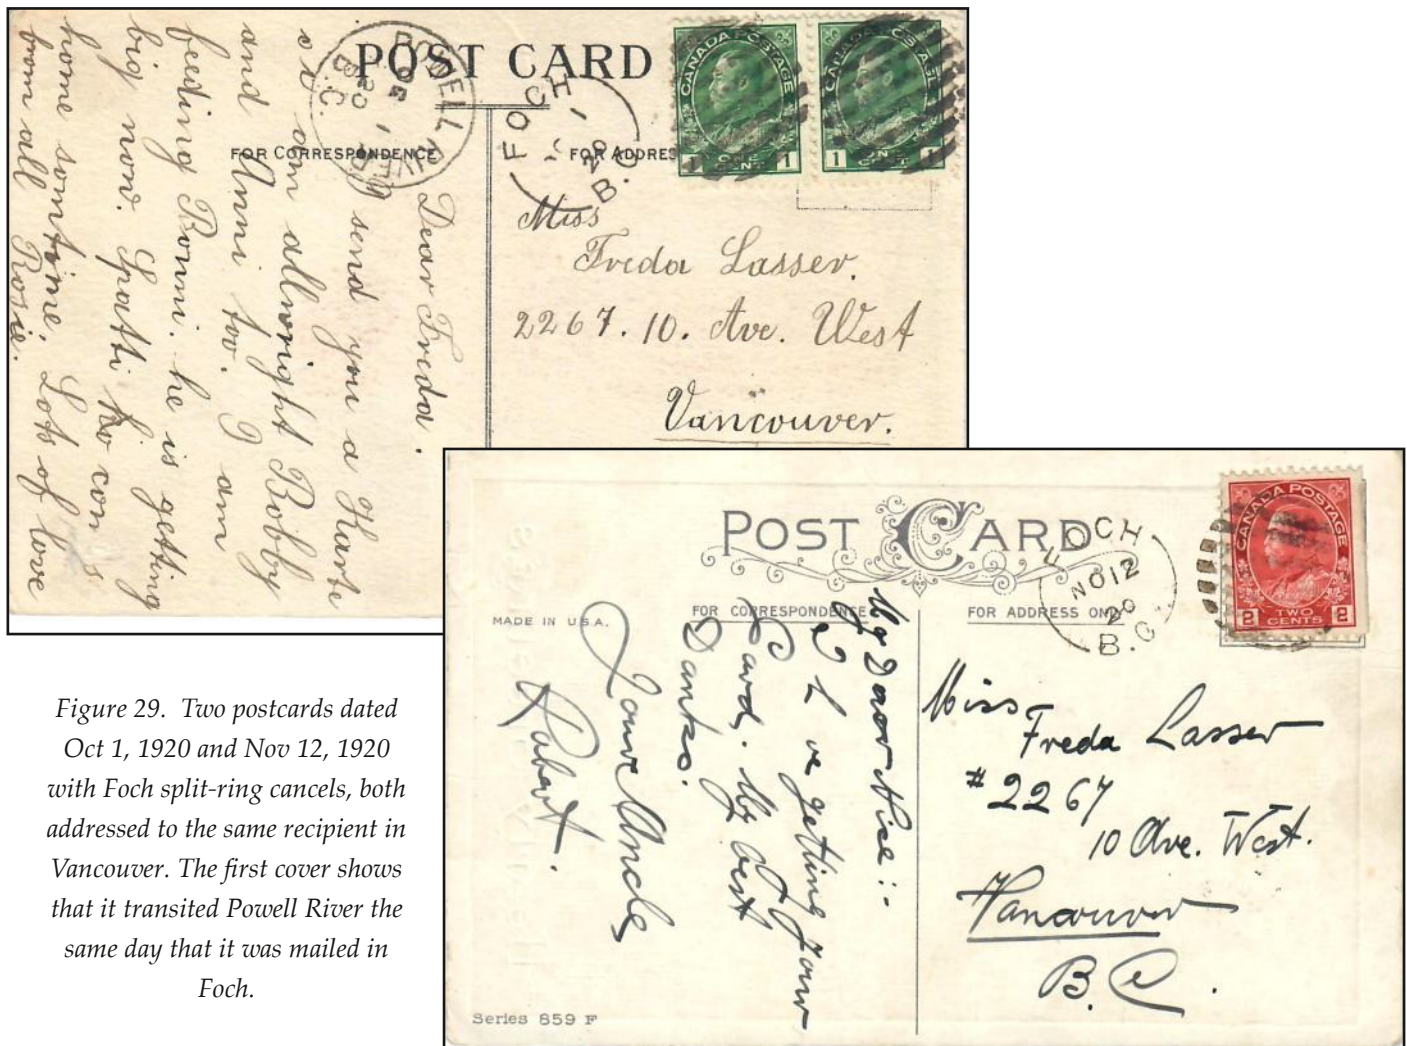 POST CARD
FOR CORRESPONDENCE
FOR ADDRES
POWELL RIVER
1
20
B.C.
FOCH
1
20
B.C
CANADA POSTAGE
1 ONE CENT 1
CANADA POSTAGE
1 ONE CENT 1
Dear Freda.
I send you a Karte
am allright Bobby
and Anni too. I am
feeding Romi. he is getting
big now. Spatti to com s
home somtime. Lots of love
from all Rosie.
Miss
Freda Lasser.
2267. 10. Ave. West
Vancouver.
POST CARD
FOR CORRESPONDENCE
FOR ADDRESS ONLY
MADE IN U.S.A.
FOCH
NO 12
20
B.C
CANADA POSTAGE
2 TWO CENTS 2
My Dear Nice:-
I ve getting your
Card. My best
Danks.
Your Uncle
Robert.
Miss
Freda Lasser
#2267
10 Ave. West.
Vancouver
B.C.
Series 859 F
Figure 29. Two postcards dated
Oct 1, 1920 and Nov 12, 1920
with Foch split-ring cancels, both
addressed to the same recipient in
Vancouver. The first cover shows
that it transited Powell River the
same day that it was mailed in
Foch.